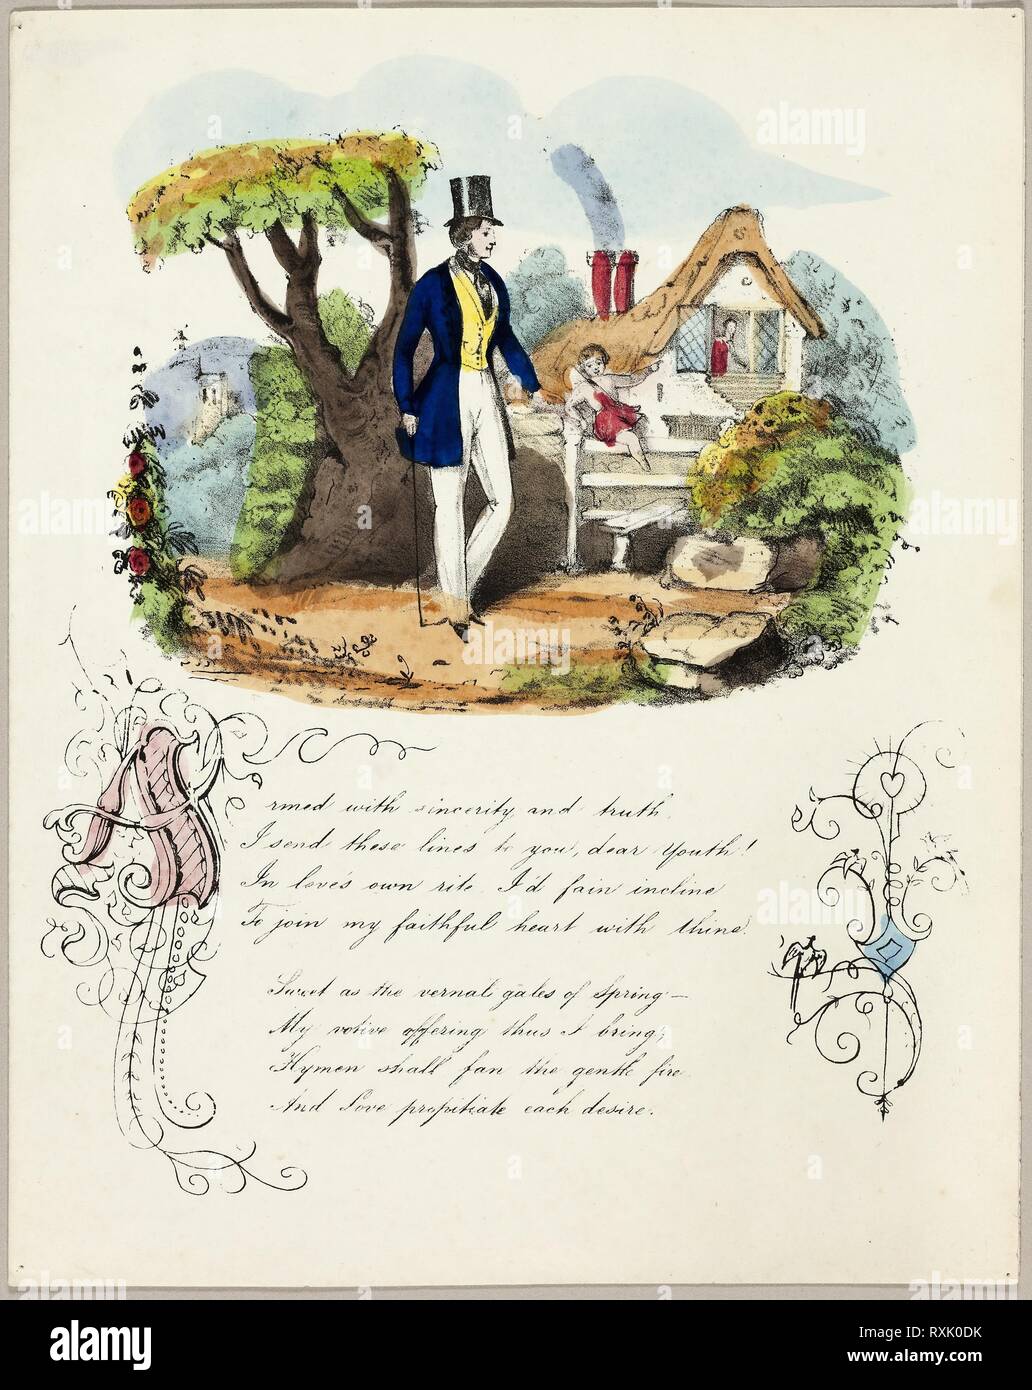 Armed with sincerity and truth,
I send these lines to you, dear Youth!
In love's own rite I'd fain incline
To join my faithful heart with thine.
Sweet as the vernal gales of Spring —
My votive offering thus I bring;
Hymen shall fan the gentle fire
And Love propitiate each desire.
alamy
Image ID: RXK0DK
www.alamy.com